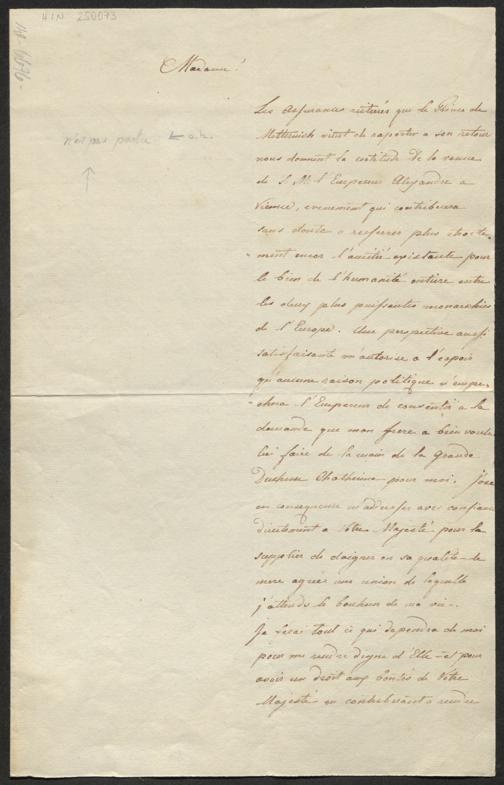 HIN 250093
Madame!
n'est pas partie
Les assurances réitérés que le Prince de
Metternich vient de raporter a son retour
nous donnent la certitude de la venue
de S. M. l'Empereur Alexandre a
Vienne, evenement qui contribuera
sans doute a resserrer plus etroite-
ment encor l'amitié existante pour
le bien de l'humanité entiere entre
les deux plus puissantes monarchies
de l'Europe. Une perspective aussi
satisfaisante m'autorise a l'espoir
qu'aucune raison politique n'empe-
chera l'Empereur de consentir a la
demande que mon frere a bien voulu
lui faire de la main de la Grande
Duchesse Chatherine pour moi. J'ose
en consequence m'addresser avec confiance
directement a Votre Majesté pour la
supplier de daigner en sa qualité de
mere agréer une union de laquelle
j'attends le bonheur de ma vie.
Je ferai tout ce qui dependra de moi
pour me rendre digne d'Elle et pour
avoir un droit aux bontés de Votre
Majesté en contribuant a rendre